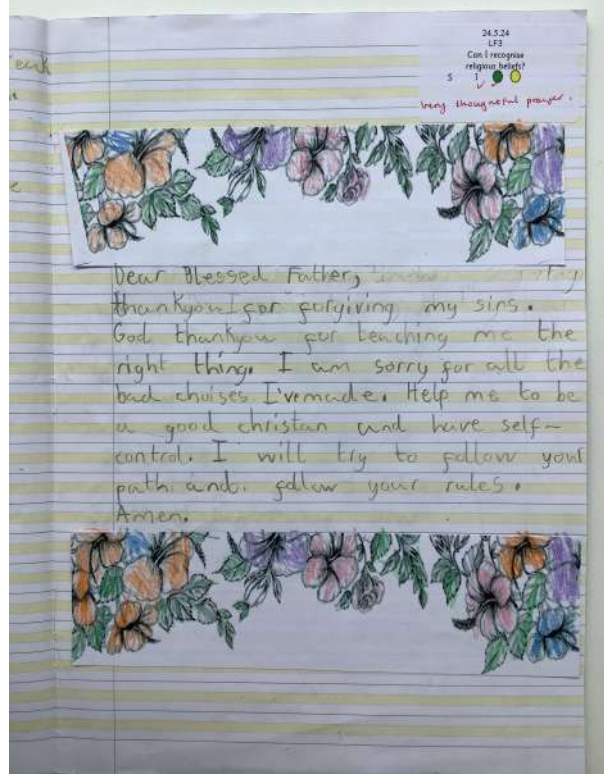 eech
24.5.24
LF3
Can I recognise
religious beliefs?
S I
Very thoughtful prayer.
Dear Blessed Father,
thankyou for forgiving my sins.
God thankyou for teaching me the
right thing. I am sorry for all the
bad choises I've made. Help me to be
a good christan and have self-
control. I will try to follow your
path and follow your rules.
Amen.